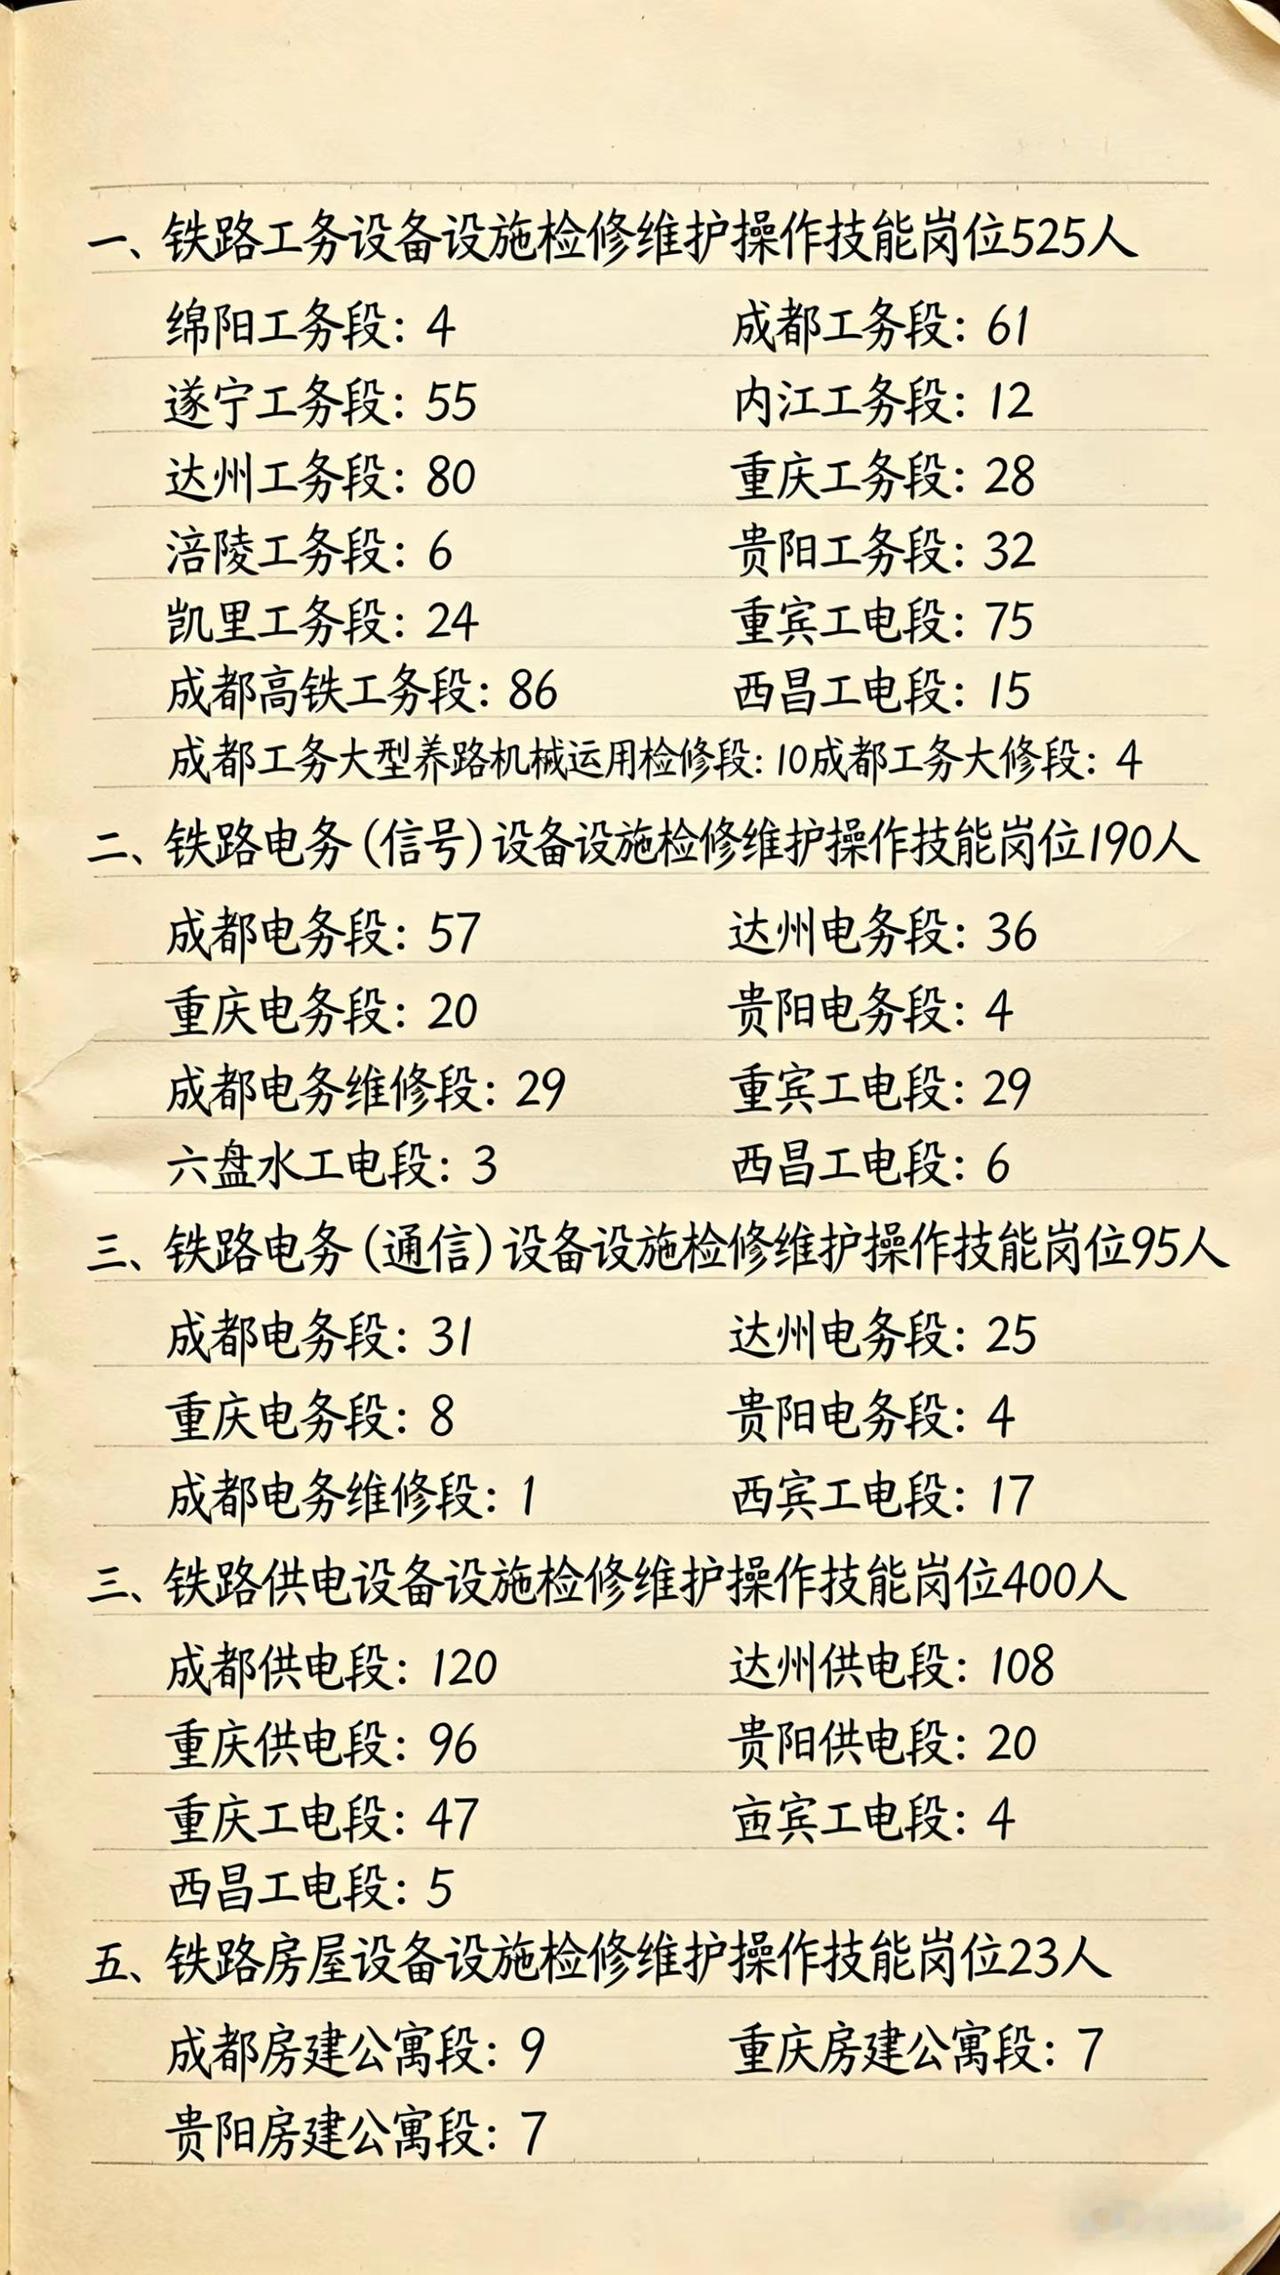 一、铁路工务设备设施检修维护操作技能岗位525人
绵阳工务段：4 成都工务段：61
遂宁工务段：55 内江工务段：12
达州工务段：80 重庆工务段：28
涪陵工务段：6 贵阳工务段：32
凯里工务段：24 重宾工电段：75
成都高铁工务段：86 西昌工电段：15
成都工务大型养路机械运用检修段：10成都工务大修段：4
二、铁路电务（信号）设备设施检修维护操作技能岗位190人
成都电务段：57 达州电务段：36
重庆电务段：20 贵阳电务段：4
成都电务维修段：29 重宾工电段：29
六盘水工电段：3 西昌工电段：6
三、铁路电务（通信）设备设施检修维护操作技能岗位95人
成都电务段：31 达州电务段：25
重庆电务段：8 贵阳电务段：4
成都电务维修段：1 西宾工电段：17
三、铁路供电设备设施检修维护操作技能岗位400人
成都供电段：120 达州供电段：108
重庆供电段：96 贵阳供电段：20
重庆工电段：47 宾工电段：4
西昌工电段：5
五、铁路房屋设备设施检修维护操作技能岗位23人
成都房建公寓段：9 重庆房建公寓段：7
贵阳房建公寓段：7